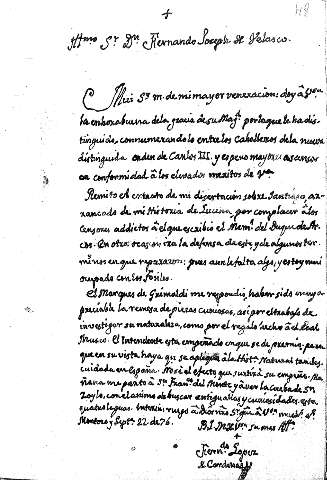 48
+
Illmo Sr Dn Fernando Joseph de Velasco.
Mui Sr m. de mi mayor veneracion: doy à
la enhorabuena de la gracia de su Magd. por la que le ha dis-
tinguido, connumerandolo entre los Caballeros de la nueva
distinguida orden de Carlos III. y espero mayores ascensos
en conformidad à los elevados meritos de
Remito el extracto de mi disertacion sobre Santiago, ar-
rancado de mi Historia de Lucena, por complacer à los
Censores addictos à el que escribió el Meml. del Duque de Ar-
cos. En otra ocasion ira la defensa de este, y de algunos ter-
minos en que repararon: pues aun le falta algo, y estoy mui
ocupado con los fosiles.
El Marques de Grimaldi me respondio, haber sido mui
preciable la remesa de piezas curiosas, asi por el trabajo de
investigar su naturaleza, como por el regalo hecho à el Real
Museo. El Intendente esta empeñado en que se me premie, pa-
que en su vista haya quien se aplique à la Histª. Natural tan des-
cuidada en España. No sè el efecto que surtirà su empeño. Ma-
ñana me parto à Sn Franco. del Monte y à ver la Cueba de Sn
Zoylo, con el animo de buscar antiguallas y curiosidades
quatro leguas. Interin ruego à Dios
Montoro y Septe. 22 de 76.
B L M
+
Ferndo. Lopez
de Cardenas